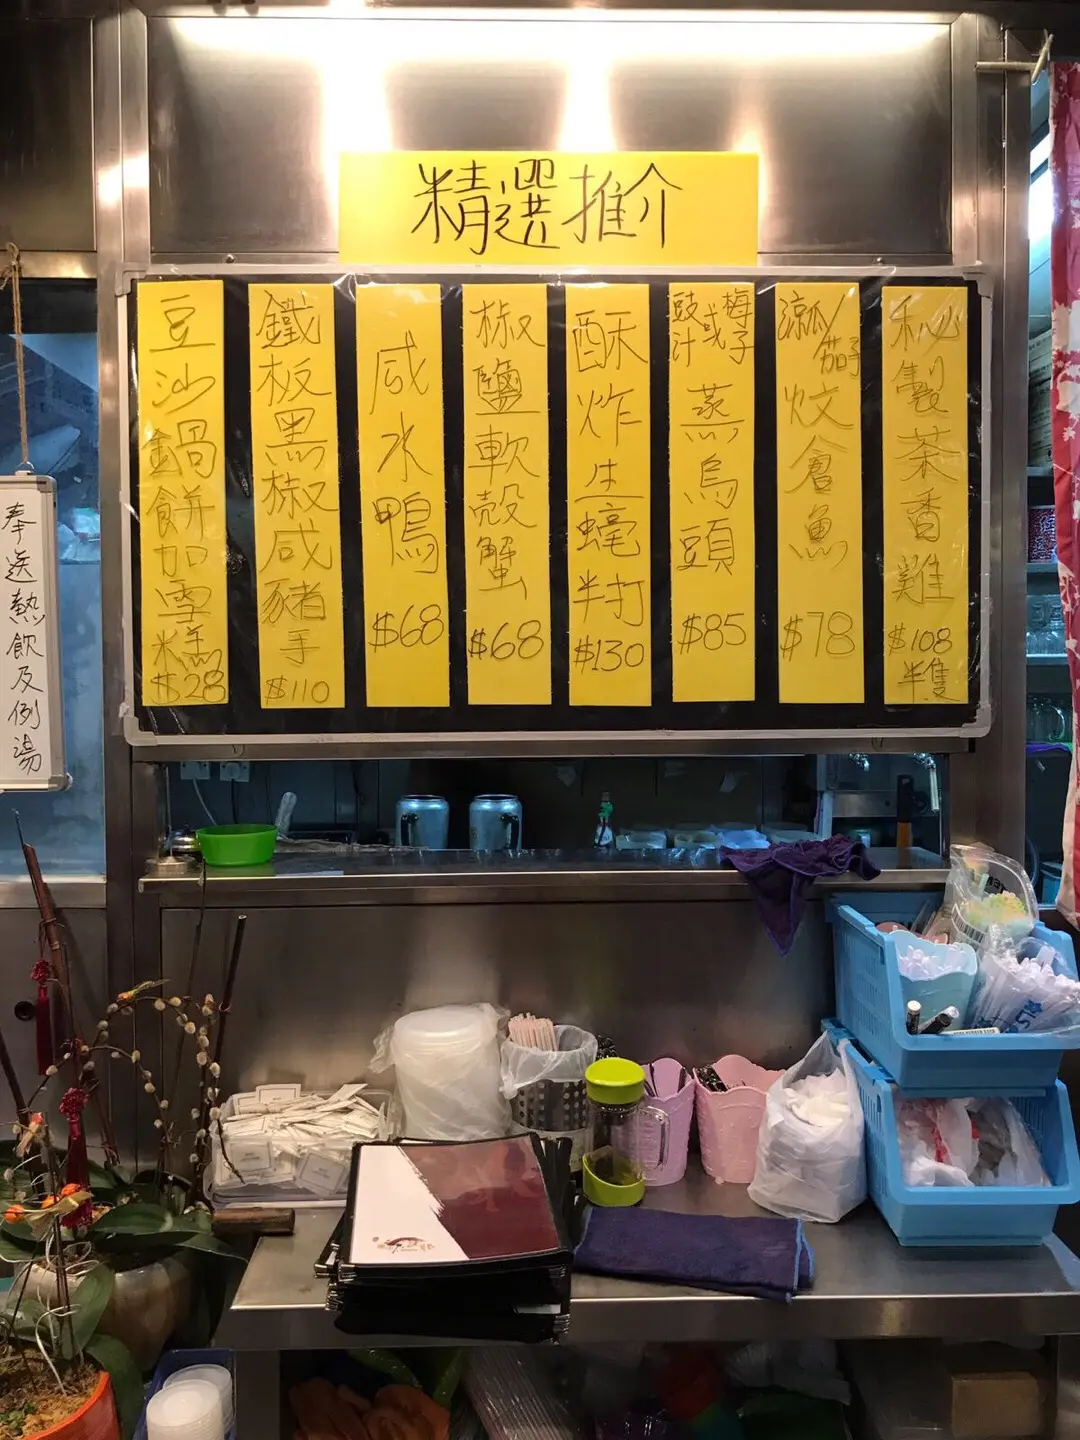 精選推介
秘製茶香雞
$108
半隻
涼瓜/茄子
炆倉魚
$78
豉汁或梅子
蒸烏頭
$85
酥炸生蠔半打
$130
椒鹽軟殼蟹
$68
咸水鴨
$68
鐵板黑椒咸豬手
$110
豆沙鍋餅加雪糕
$28
奉送熱飲及例湯